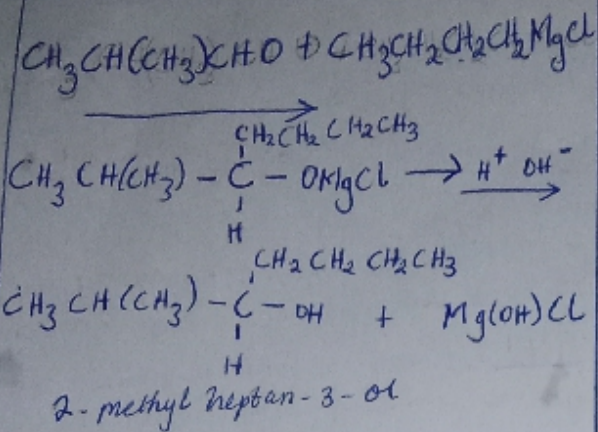 CH₃CH(CH₃)CHO + CH₃CH₂CH₂CH₂MgCl
⟶
CH₂CH₂CH₂CH₃
CH₃CH(CH₃) – C – OMgCl ⟶ H⁺ OH⁻
H
CH₂CH₂CH₂CH₃
CH₃CH(CH₃) – C – OH + Mg(OH)Cl
H
2-methyl heptan-3-ol